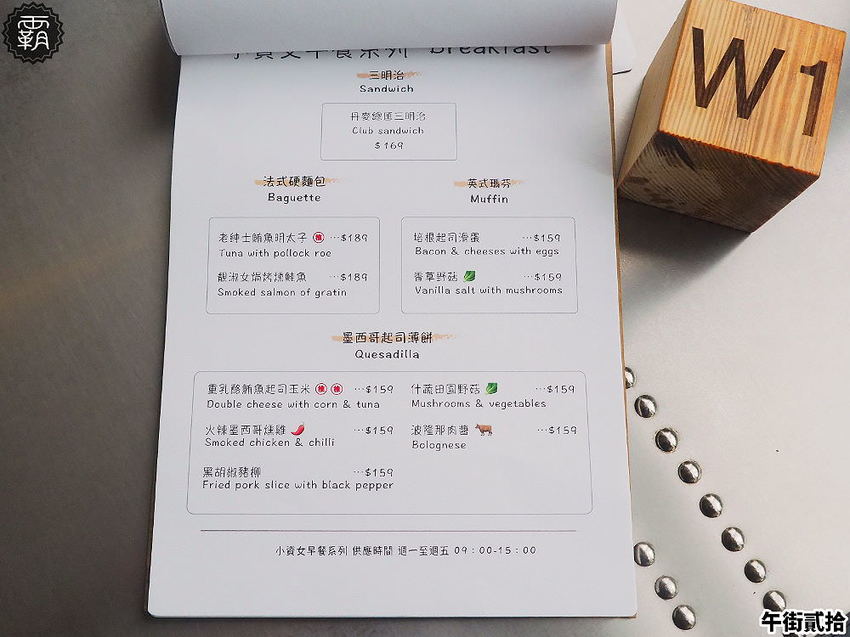 霸
小資女早餐系列 breakfast
W1
三明治
Sandwich
丹麥總匯三明治
Club sandwich
$169
法式硬麵包
Baguette
老紳士鮪魚明太子 推 ···$189
Tuna with pollock roe
靚淑女焗烤燻鮭魚 ···$189
Smoked salmon of gratin
英式瑪芬
Muffin
培根起司滑蛋 ···$159
Bacon & cheeses with eggs
香草野菇 ···$159
Vanilla salt with mushrooms
墨西哥起司薄餅
Quesadilla
重乳酪鮪魚起司玉米 推 推 ···$159
Double cheese with corn & tuna
火辣墨西哥燻雞 ···$159
Smoked chicken & chilli
黑胡椒豬柳 ···$159
Fried pork slice with black pepper
什蔬田園野菇 ···$159
Mushrooms & vegetables
波隆那肉醬 ···$159
Bolognese
小資女早餐系列 供應時間 週一至週五 09：00-15：00
午街貳拾